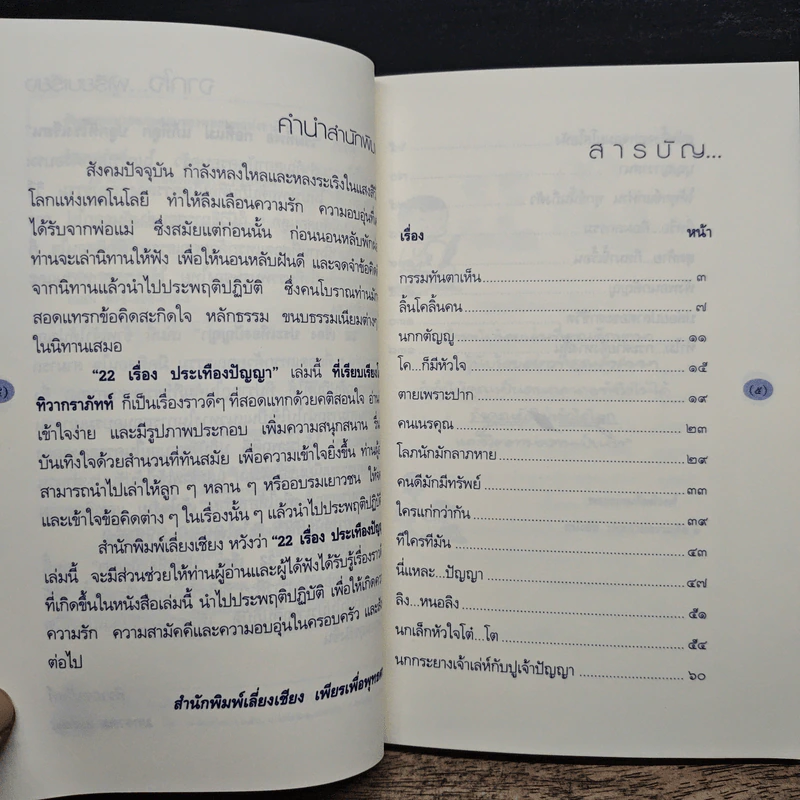 คำนำสำนักพิม
สังคมปัจจุบัน กำลังหลงใหลและหลงระเริงในแสงสี
โลกแห่งเทคโนโลยี ทำให้ลืมเลือนความรัก ความอบอุ่นที่
ได้รับจากพ่อแม่ ซึ่งสมัยแต่ก่อนนั้น ก่อนนอนหลับพัก
ท่านจะเล่านิทานให้ฟัง เพื่อให้นอนหลับฝันดี และจดจำข้อคิด
จากนิทานแล้วนำไปประพฤติปฏิบัติ ซึ่งคนโบราณท่าน
สอดแทรกข้อคิดสะกิดใจ หลักธรรม ขนบธรรมเนียมต่างๆ
ในนิทานเสมอ
"22 เรื่อง ประเทืองปัญญา" เล่มนี้ ที่เรียบเรียง
ทิวากราภัทท์ ก็เป็นเรื่องราวดีๆ ที่สอดแทกด้วยคติสอนใจ อ่าน
เข้าใจง่าย และมีรูปภาพประกอบ เพิ่มความสนุกสนาน
บันเทิงใจด้วยสำนวนที่ทันสมัย เพื่อความเข้าใจยิ่งขึ้น ท่าน
สามารถนำไปเล่าให้ลูก ๆ หลาน ๆ หรืออบรมเยาวชน
และเข้าใจข้อคิดต่าง ๆ ในเรื่องนั้น ๆ แล้วนำไปประพฤติปฏิบัติ
สำนักพิมพ์เลี่ยงเชียง หวังว่า "22 เรื่อง ประเทืองปัญ
เล่มนี้ จะมีส่วนช่วยให้ท่านผู้อ่านและผู้ได้ฟังได้รับรู้เรื่องราว
ที่เกิดขึ้นในหนังสือเล่มนี้ นำไปประพฤติปฏิบัติ เพื่อให้เกิด
ความรัก ความสามัคคีและความอบอุ่นในครอบครัว และ
ต่อไป
สำนักพิมพ์เลี่ยงเชียง เพียรเพื่อพุทธ
สารบัญ...
เรื่อง หน้า
กรรมทันตาเห็น ๓
ลิ้นโคลิ้นคน ๗
นกกตัญญู ๑๑
โค...ก็มีหัวใจ ๑๕
ตายเพราะปาก ๑๙
คนเนรคุณ ๒๓
โลภนักมักลาภหาย ๒๙
คนดีมักมีทรัพย์ ๓๓
ใครแก่กว่ากัน ๓๙
ทีใครทีมัน ๔๓
นี่แหละ...ปัญญา ๔๗
ลิง...หนอลิง ๕๑
นกเล็กหัวใจโต๋...โต ๕๔
นกกระยางเจ้าเล่ห์กับปูเจ้าปัญญา ๖๐
(๕)